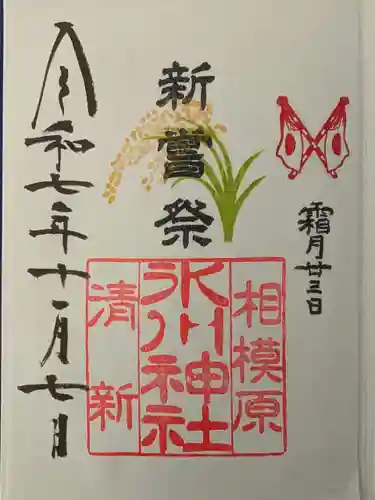 霜月廿三日
新嘗祭
相模原
氷川神社
清新
令和七年十一月七日